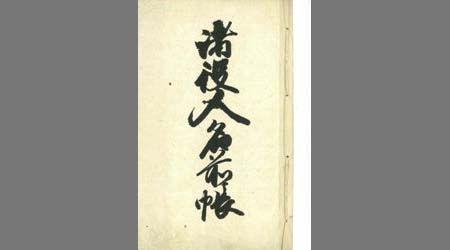 諸役人名前帳